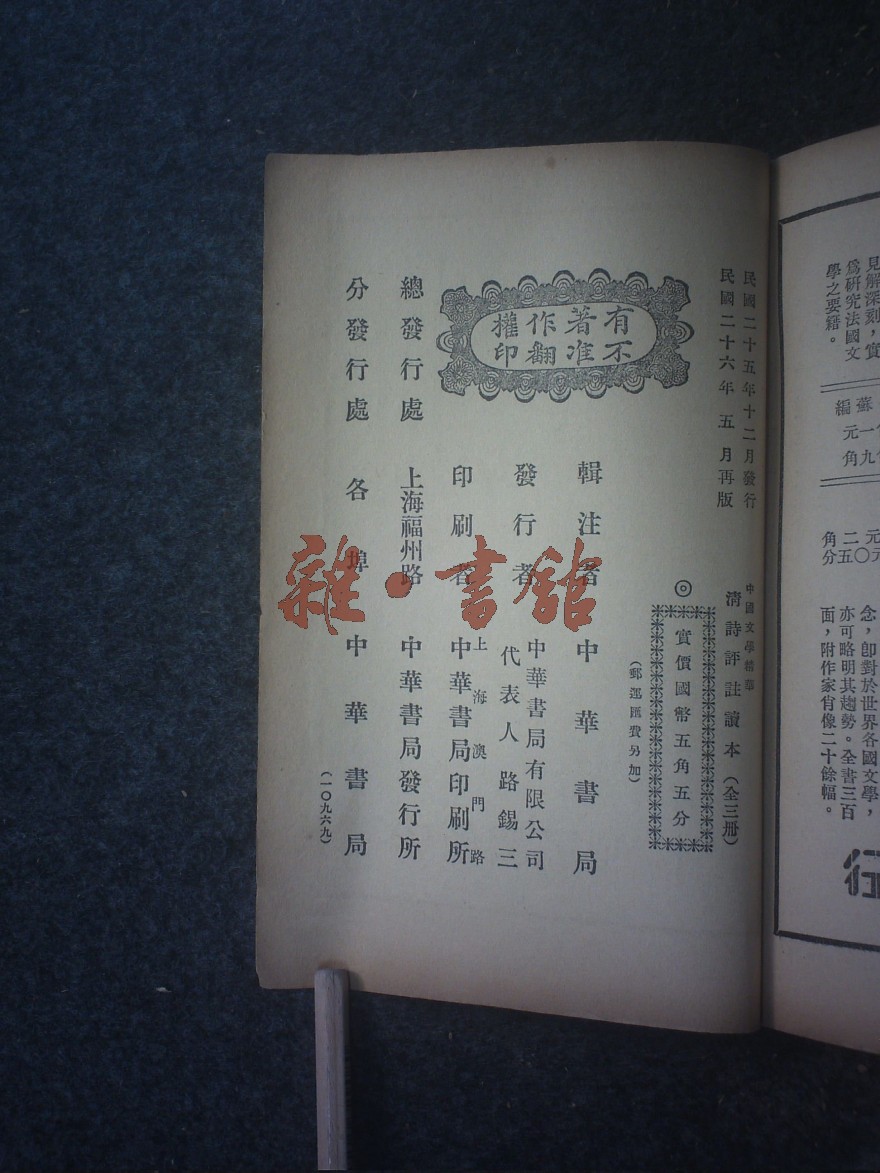 見解深刻，實
爲研究法國文
學之要籍。
蘇編
元一
角九
元
二五〇
角分
念，卽對於世界各國文學，
亦可略明其趨勢。全書三百
面，附作家肖像二十餘幅。
行
民國二十五年十二月發行
民國二十六年五月再版
中國文學精華
清詩評註讀本（全三冊）
◎實價國幣五角五分
（郵運匯費另加）
有著作權
不准翻印
輯注者 中華書局
發行者 中華書局有限公司
代表人路錫三
印刷者 上海澳門路
中華書局印刷所
總發行處 上海福州路 中華書局發行所
分發行處 各埠 中華書局
（一〇九六九）
雜·書館